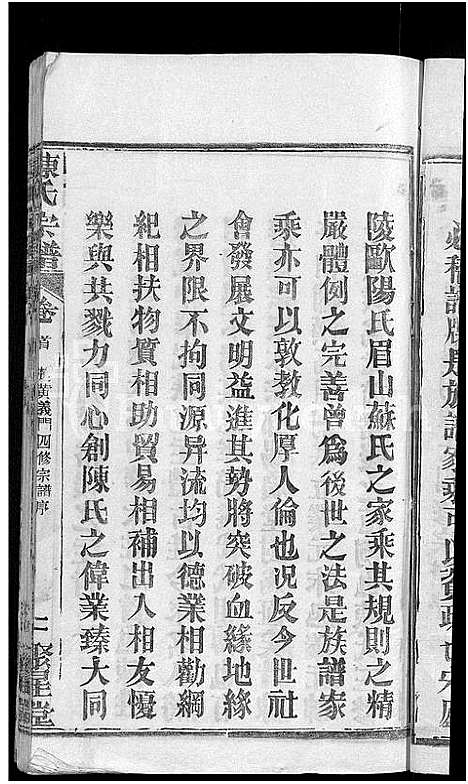 陵歐陽氏眉山蘇氏之家乘其規則之精
嚴體例之完善曾爲後世之法是族譜家
乘亦可以敦教化厚人倫也況反今世社
會發展文明益進其勢將突破血緣地緣
之界限不拘同源异流均以德業相勸綱
紀相扶物質相助貿易相補出入相友憂
樂與共戮力同心創陳氏之偉業臻大同
陳氏宗譜
卷首
黃義門四修宗譜序
二
聚星堂